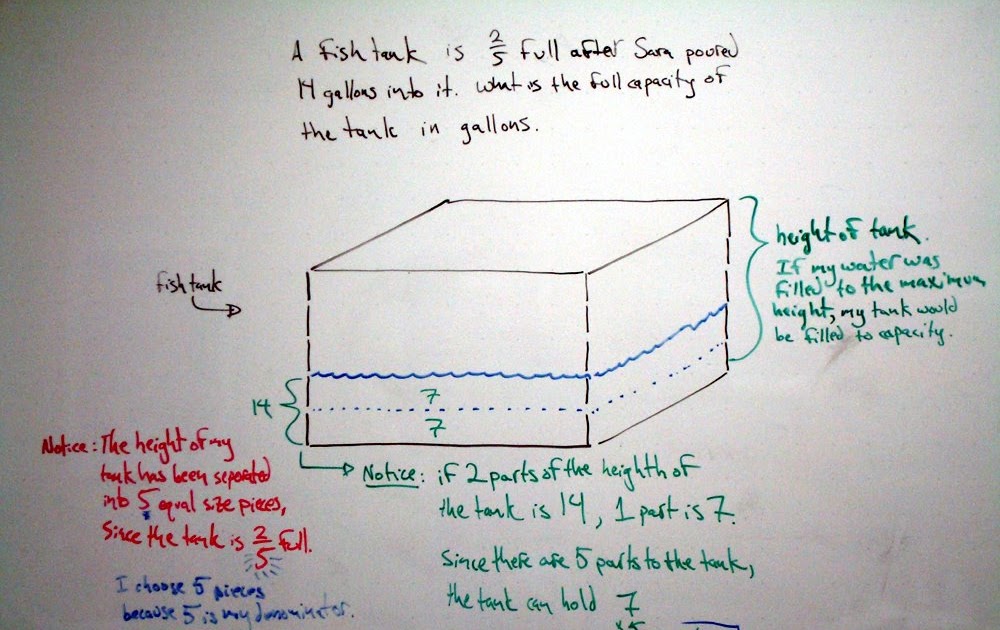 A fish tank is 2/5 full after Sara poured
14 gallons into it. What is the full capacity of
the tank in gallons.
fish tank
height of tank.
If my water was
filled to the maximum
height, my tank would
be filled to capacity.
14
7
7
Notice: The height of my
tank has been seperated
into 5 equal size pieces,
Since the tank is 2/5 full.
I choose 5 pieces
because 5 is my denominator.
Notice: if 2 parts of the heighth of
the tank is 14, 1 part is 7.
Since there are 5 parts to the tank,
the tank can hold 7